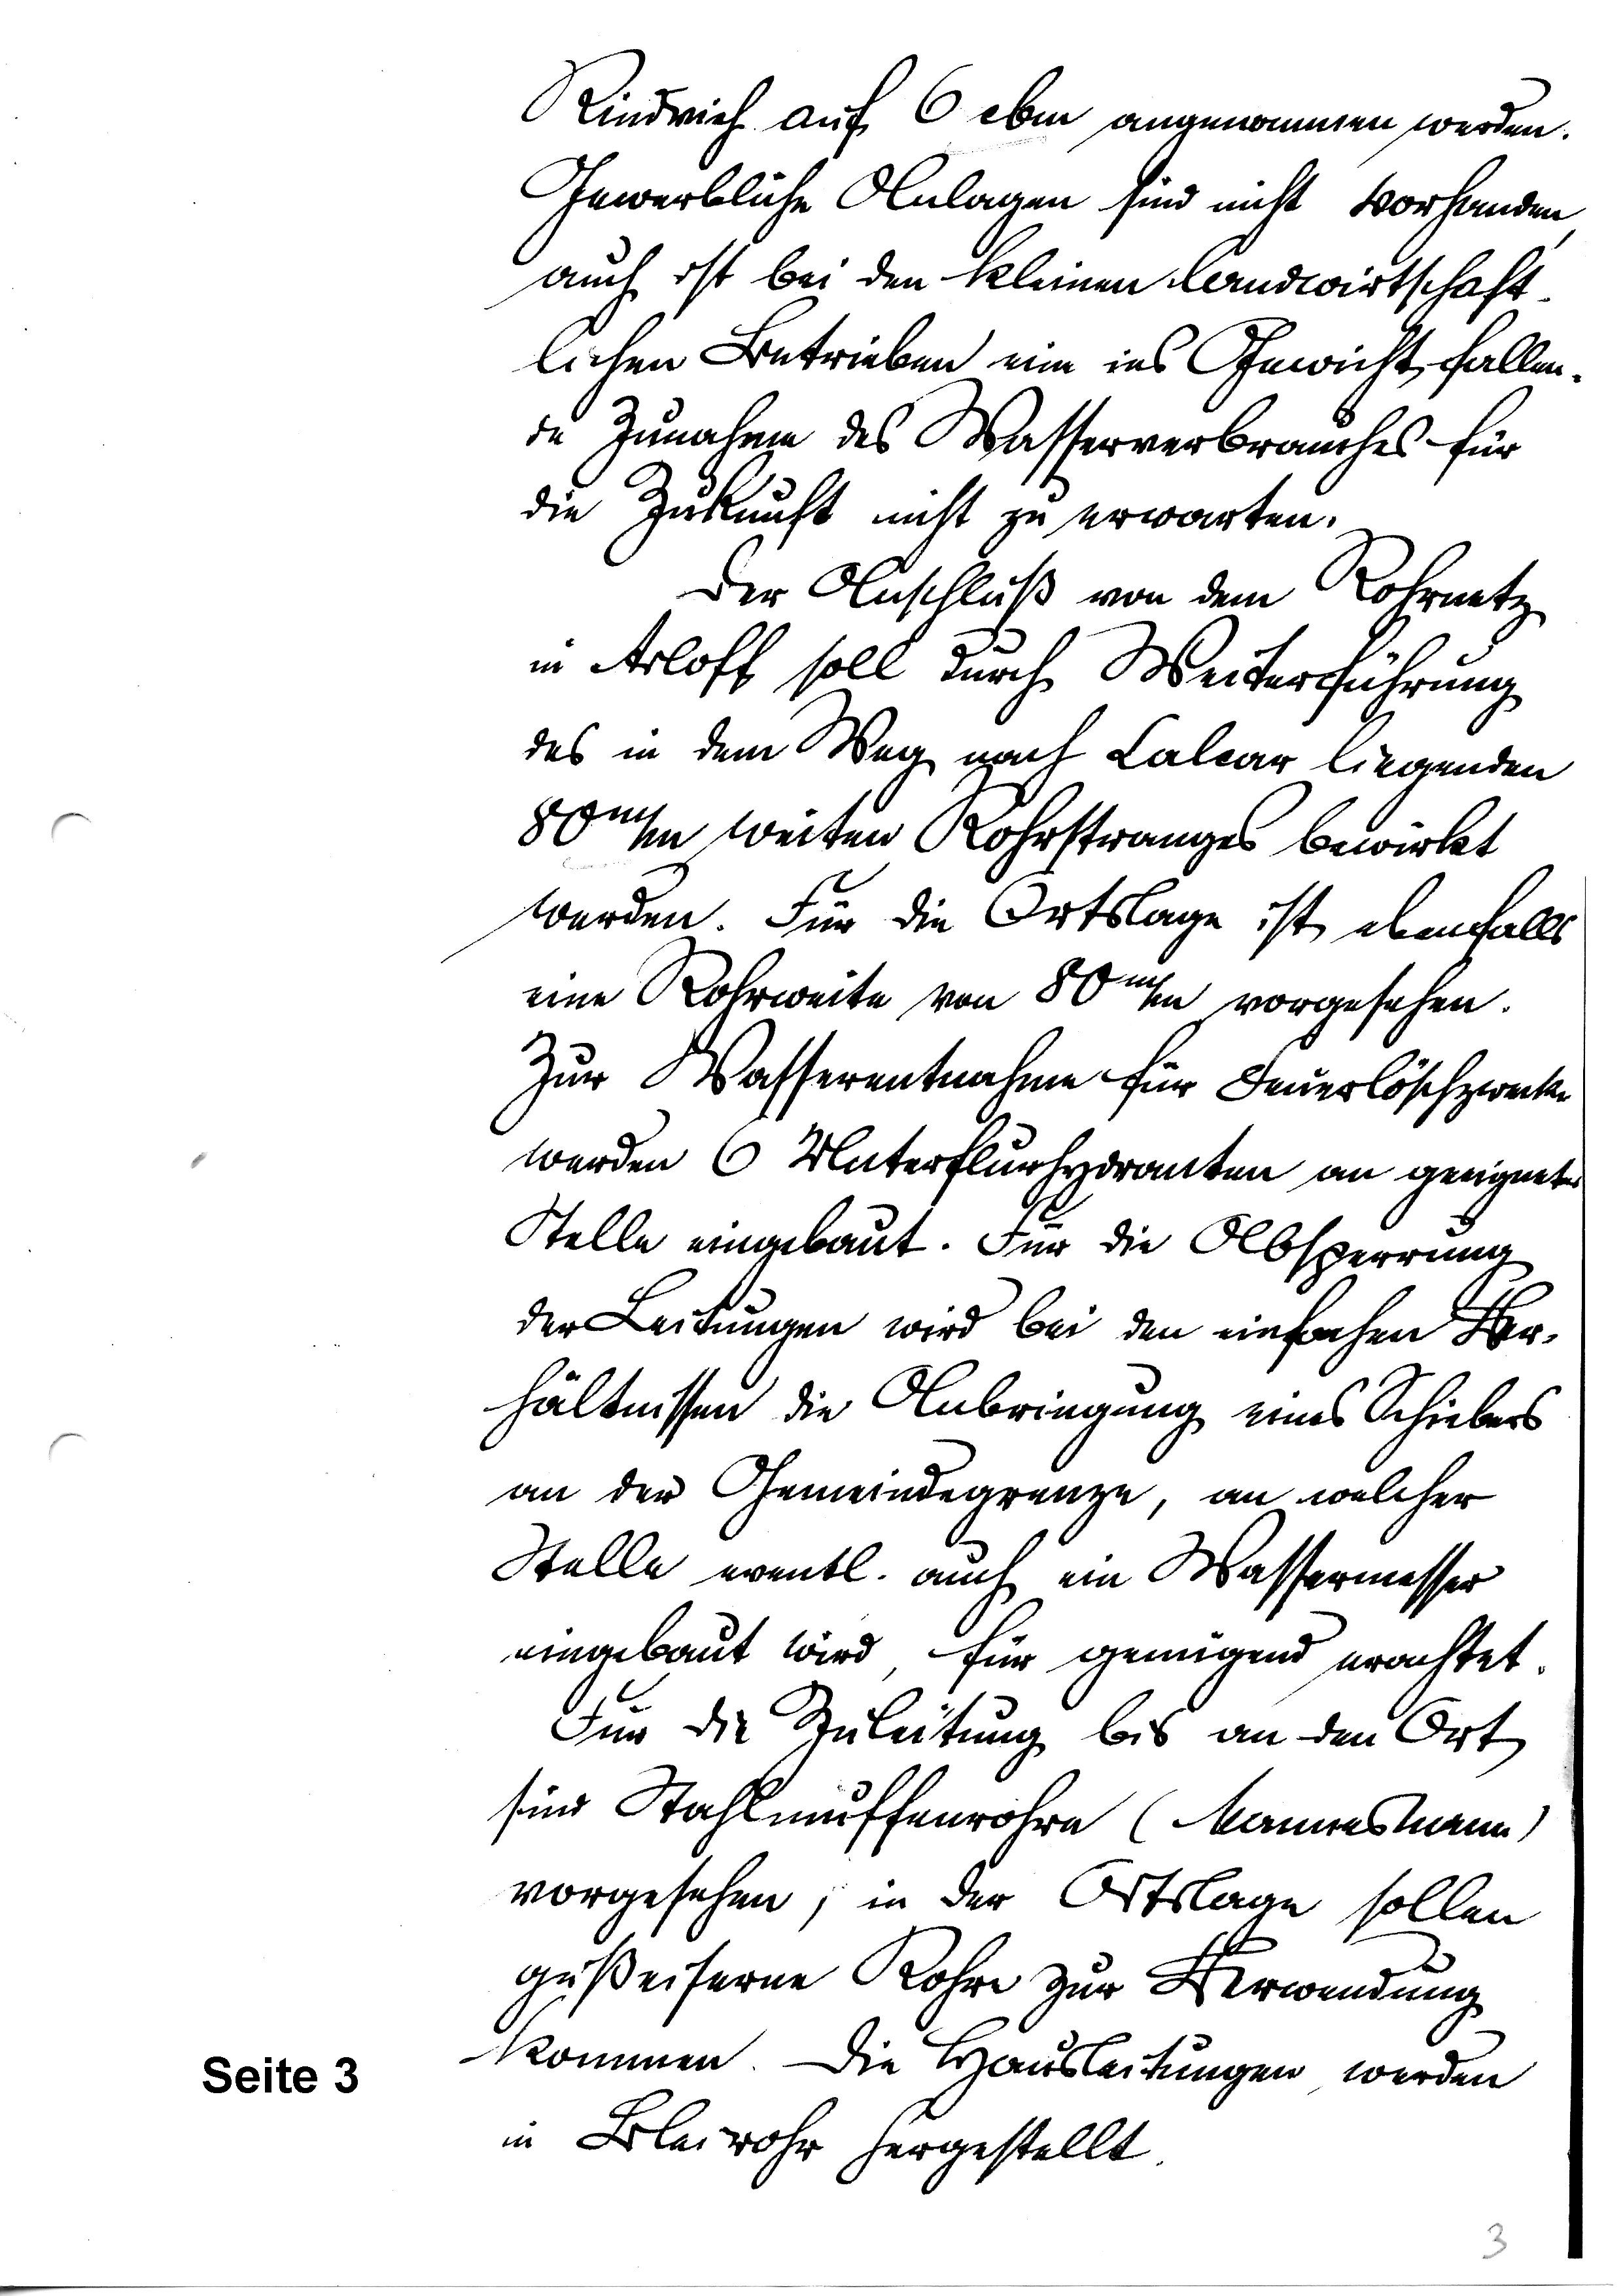 Rindvieh auf 6 cbm angenommen werden.
Gewerbliche Anlagen sind nicht vorhanden,
auch ist bei den kleinen landwirtschaft-
lichen Betrieben eine ins Gewicht fallen-
de Zunahme des Wasserverbrauches für
die Zukunft nicht zu erwarten.
Der Anschluß von dem Rohrnetz
in Arloff soll durch Weiterführung
des in dem Weg nach Calcar liegenden
80 m/m weiten Rohrstranges bewirkt
werden. Für die Ortslage ist ebenfalls
eine Rohrweite von 80 m/m vorgesehen.
Zur Wasserentnahme für Feuerlöschzwecke
werden 6 Unterflurhydranten an geeigneter
Stelle eingebaut. Für die Absperrung
der Leitungen wird bei den einfachen Ver-
hältnissen die Anbringung eines Schiebers
an der Gemeindegrenze, an welcher
Stelle eventl. auch ein Wassermesser
eingebaut wird, für genügend erachtet.
Für die Zuleitung bis an den Ort
sind Stahlmuffenrohre (Mannesmann)
vorgesehen, in der Ortslage sollen
gußeiserne Rohre zur Verwendung
kommen. Die Hausleitungen werden
in Bleirohr hergestellt.
Seite 3
3